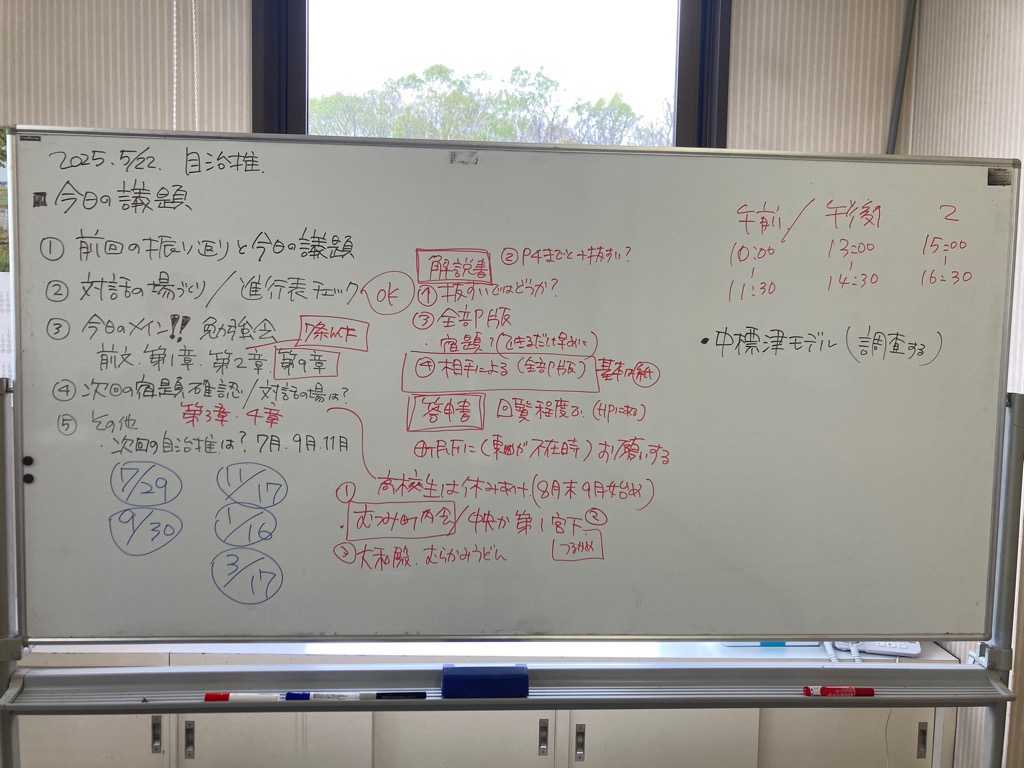 2025.5/22. 自治推.
■今日の議題
① 前回の振り返りと今日の議題
② 対話の場づくり／進行表チェック OK
③ 今日のメイン!! 勉強会 7条以下
前文.第1章.第2章.第9章
④ 次回の宿題確認／対話の場は?
第3章.4章
⑤ その他
・次回の自治推は? 7月.9月.11月
7/29
11/17
9/30
1/16
3/17
解説書 ②P4までと+抜すい?
①抜すいではどうか?
③全部P版
・宿題?(できるだけ早めに)
④相手による(全部P版) 基本は紙
答申書 回覧程度で.(HPにある)
不在時)お願いする
高校生は休みあけ.(8月末9月始め)
①
・むつみ町内会／中央か第1宮下②
③大和殿.むらかみうどん
つるかめ
午前／午後 2
10:00 13:00 15:00
11:30 14:30 16:30
・中標津モデル(調査する)